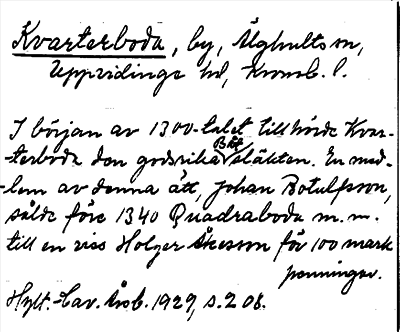 Kvarterboda, by, Älghults sn,
Uppvidinge hd, Kronob. l.
I början av 1300-talet tillhörde Kvar-
-terboda den godsrika släkten. En med-
-lem av denna ätt, Johan Botulfsson,
sålde före 1340 Quadraboda m. m.
till en viss Holger Åkesson för 100 mark
penningar.
Hylt.-Cav. Årsb. 1929, s. 208.